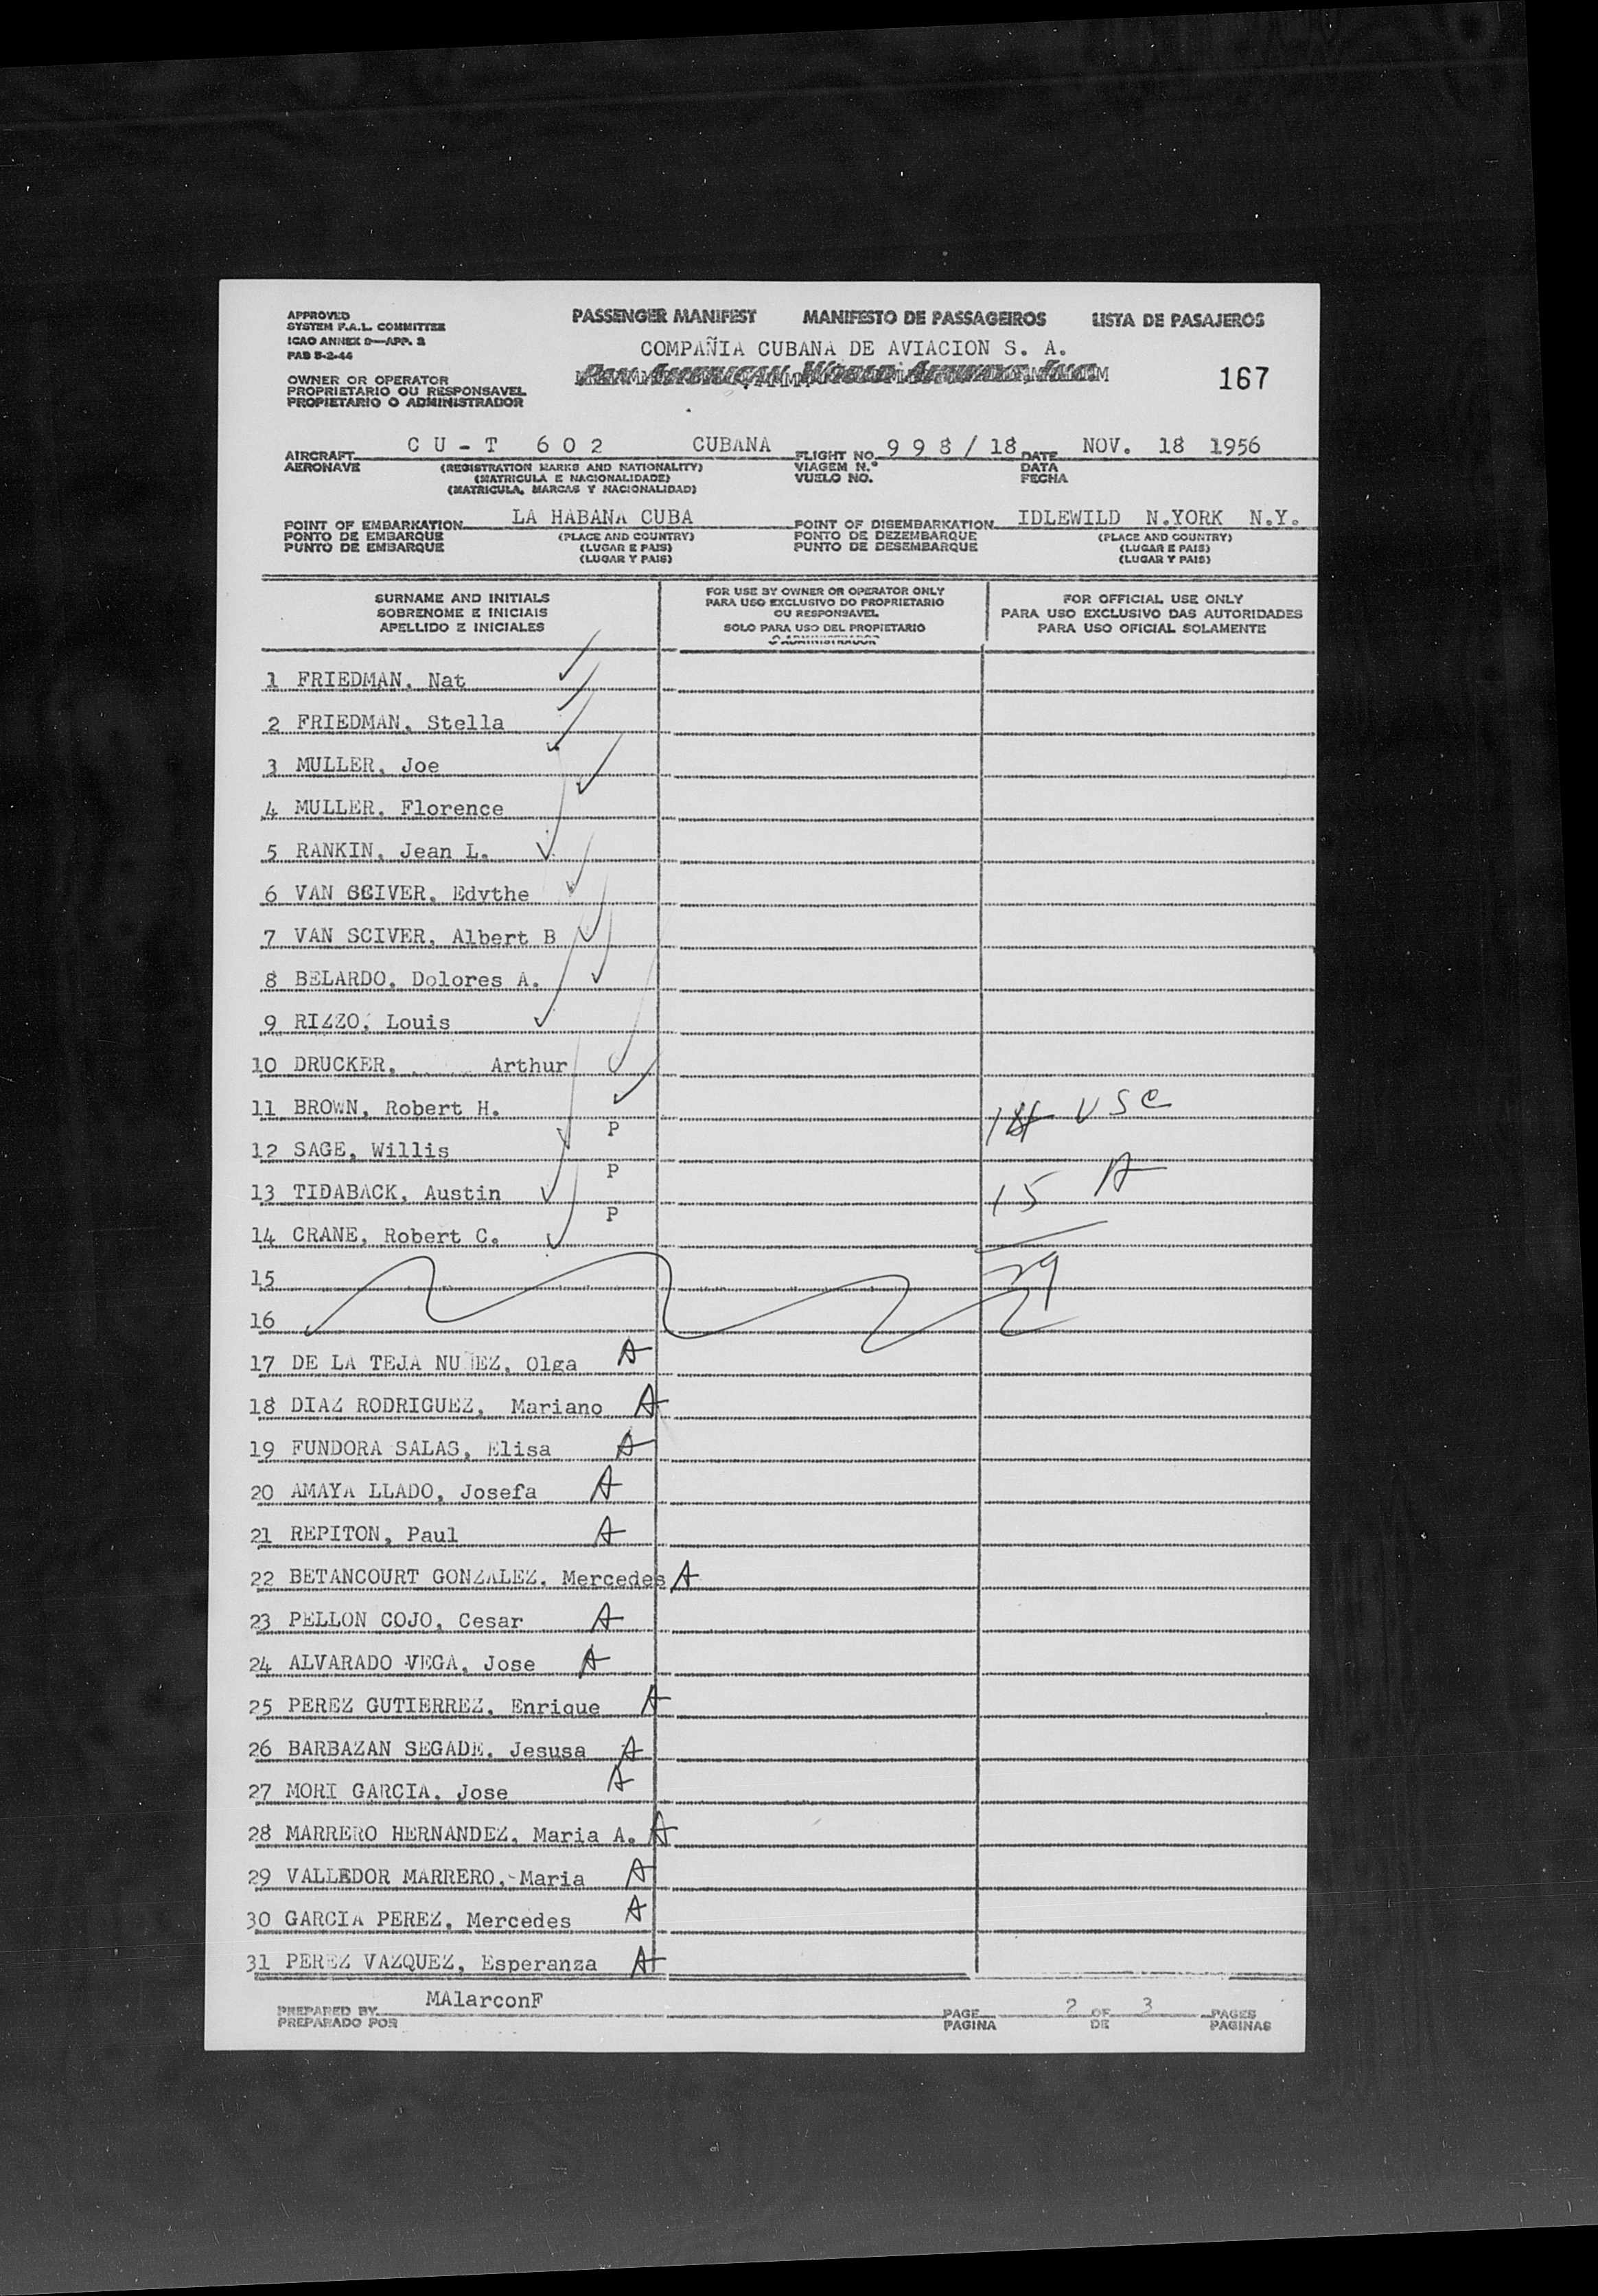 APPROVED
SYSTEM F.A.L. COMMITTEE
ICAO ANNEX 9—APP. 2
PAB 5-2-44
PASSENGER MANIFEST MANIFESTO DE PASSAGEIROS LISTA DE PASAJEROS
COMPAÑIA CUBANA DE AVIACION S. A.
PAN AMERICAN WORLD AIRWAYS, INC.
167
OWNER OR OPERATOR
PROPRIETARIO OU RESPONSAVEL
PROPIETARIO O ADMINISTRADOR
AIRCRAFT CU-T 602 CUBANA FLIGHT NO. 998/18 DATE NOV. 18 1956
AERONAVE (REGISTRATION MARKS AND NATIONALITY) VIAGEM N.° DATA
(MATRICULA E NACIONALIDADE) VUELO NO. FECHA
(MATRICULA, MARCAS Y NACIONALIDAD)
POINT OF EMBARKATION LA HABANA CUBA POINT OF DISEMBARKATION IDLEWILD N.YORK N.Y.
PONTO DE EMBARQUE (PLACE AND COUNTRY) PONTO DE DEZEMBARQUE (PLACE AND COUNTRY)
PUNTO DE EMBARQUE (LUGAR E PAIS) PUNTO DE DESEMBARQUE (LUGAR E PAIS)
(LUGAR Y PAIS) (LUGAR Y PAIS)
SURNAME AND INITIALS
SOBRENOME E INICIAIS
APELLIDO E INICIALES
FOR USE BY OWNER OR OPERATOR ONLY
PARA USO EXCLUSIVO DO PROPRIETARIO
OU RESPONSAVEL
SOLO PARA USO DEL PROPIETARIO
O ADMINISTRADOR
FOR OFFICIAL USE ONLY
PARA USO EXCLUSIVO DAS AUTORIDADES
PARA USO OFICIAL SOLAMENTE
1 FRIEDMAN, Nat
2 FRIEDMAN, Stella
3 MULLER, Joe
4 MULLER, Florence
5 RANKIN, Jean L.
6 VAN SCIVER, Edythe
7 VAN SCIVER, Albert B
8 BELARDO, Dolores A.
9 RIZZO, Louis
10 DRUCKER, Arthur
11 BROWN, Robert H. 14 USC
P
12 SAGE, Willis
P
13 TIDABACK, Austin 15 A
P
14 CRANE, Robert C.
15 29
16
17 DE LA TEJA NUÑEZ, Olga A
18 DIAZ RODRIGUEZ, Mariano A
19 FUNDORA SALAS, Elisa A
20 AMAYA LLADO, Josefa A
21 REPITON, Paul A
22 BETANCOURT GONZALEZ, Mercedes A
23 PELLON COJO, Cesar A
24 ALVARADO VEGA, Jose A
25 PEREZ GUTIERREZ, Enrique A
26 BARBAZAN SEGADE, Jesusa A
27 MORI GARCIA, Jose A
28 MARRERO HERNANDEZ, Maria A. A
29 VALLEDOR MARRERO, Maria A
30 GARCIA PEREZ, Mercedes A
31 PEREZ VAZQUEZ, Esperanza A
PREPARED BY MAlarconF PAGE 2 OF 3 PAGES
PREPARADO POR PAGINA DE PAGINAS